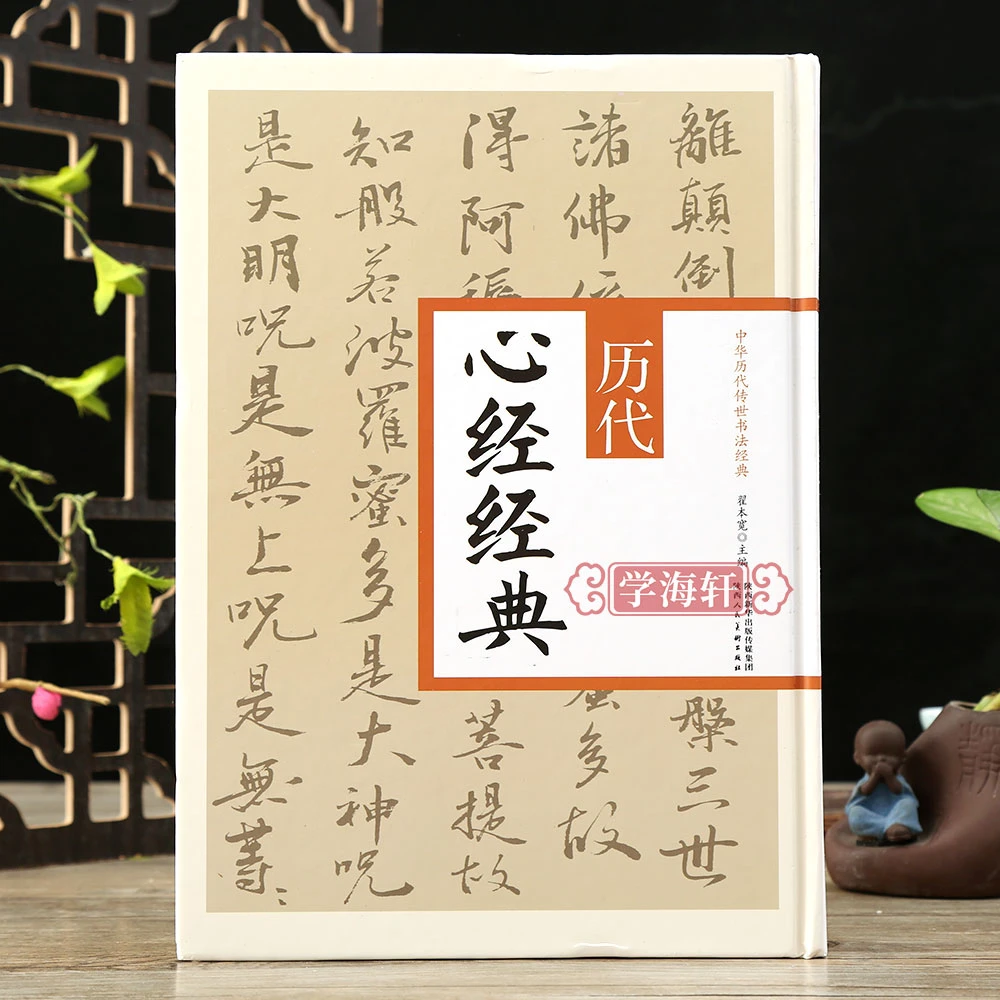 離顛倒
槃三世
諸佛依
蜜多故
得阿耨
菩提故
知般若波羅蜜多是大神呪
是大明呪是無上呪是無等〻
中华历代传世书法经典
翟本宽◎主编
陕西新华出版传媒集团
陕西人民美术出版社
历代
心经经典
学海轩
靜